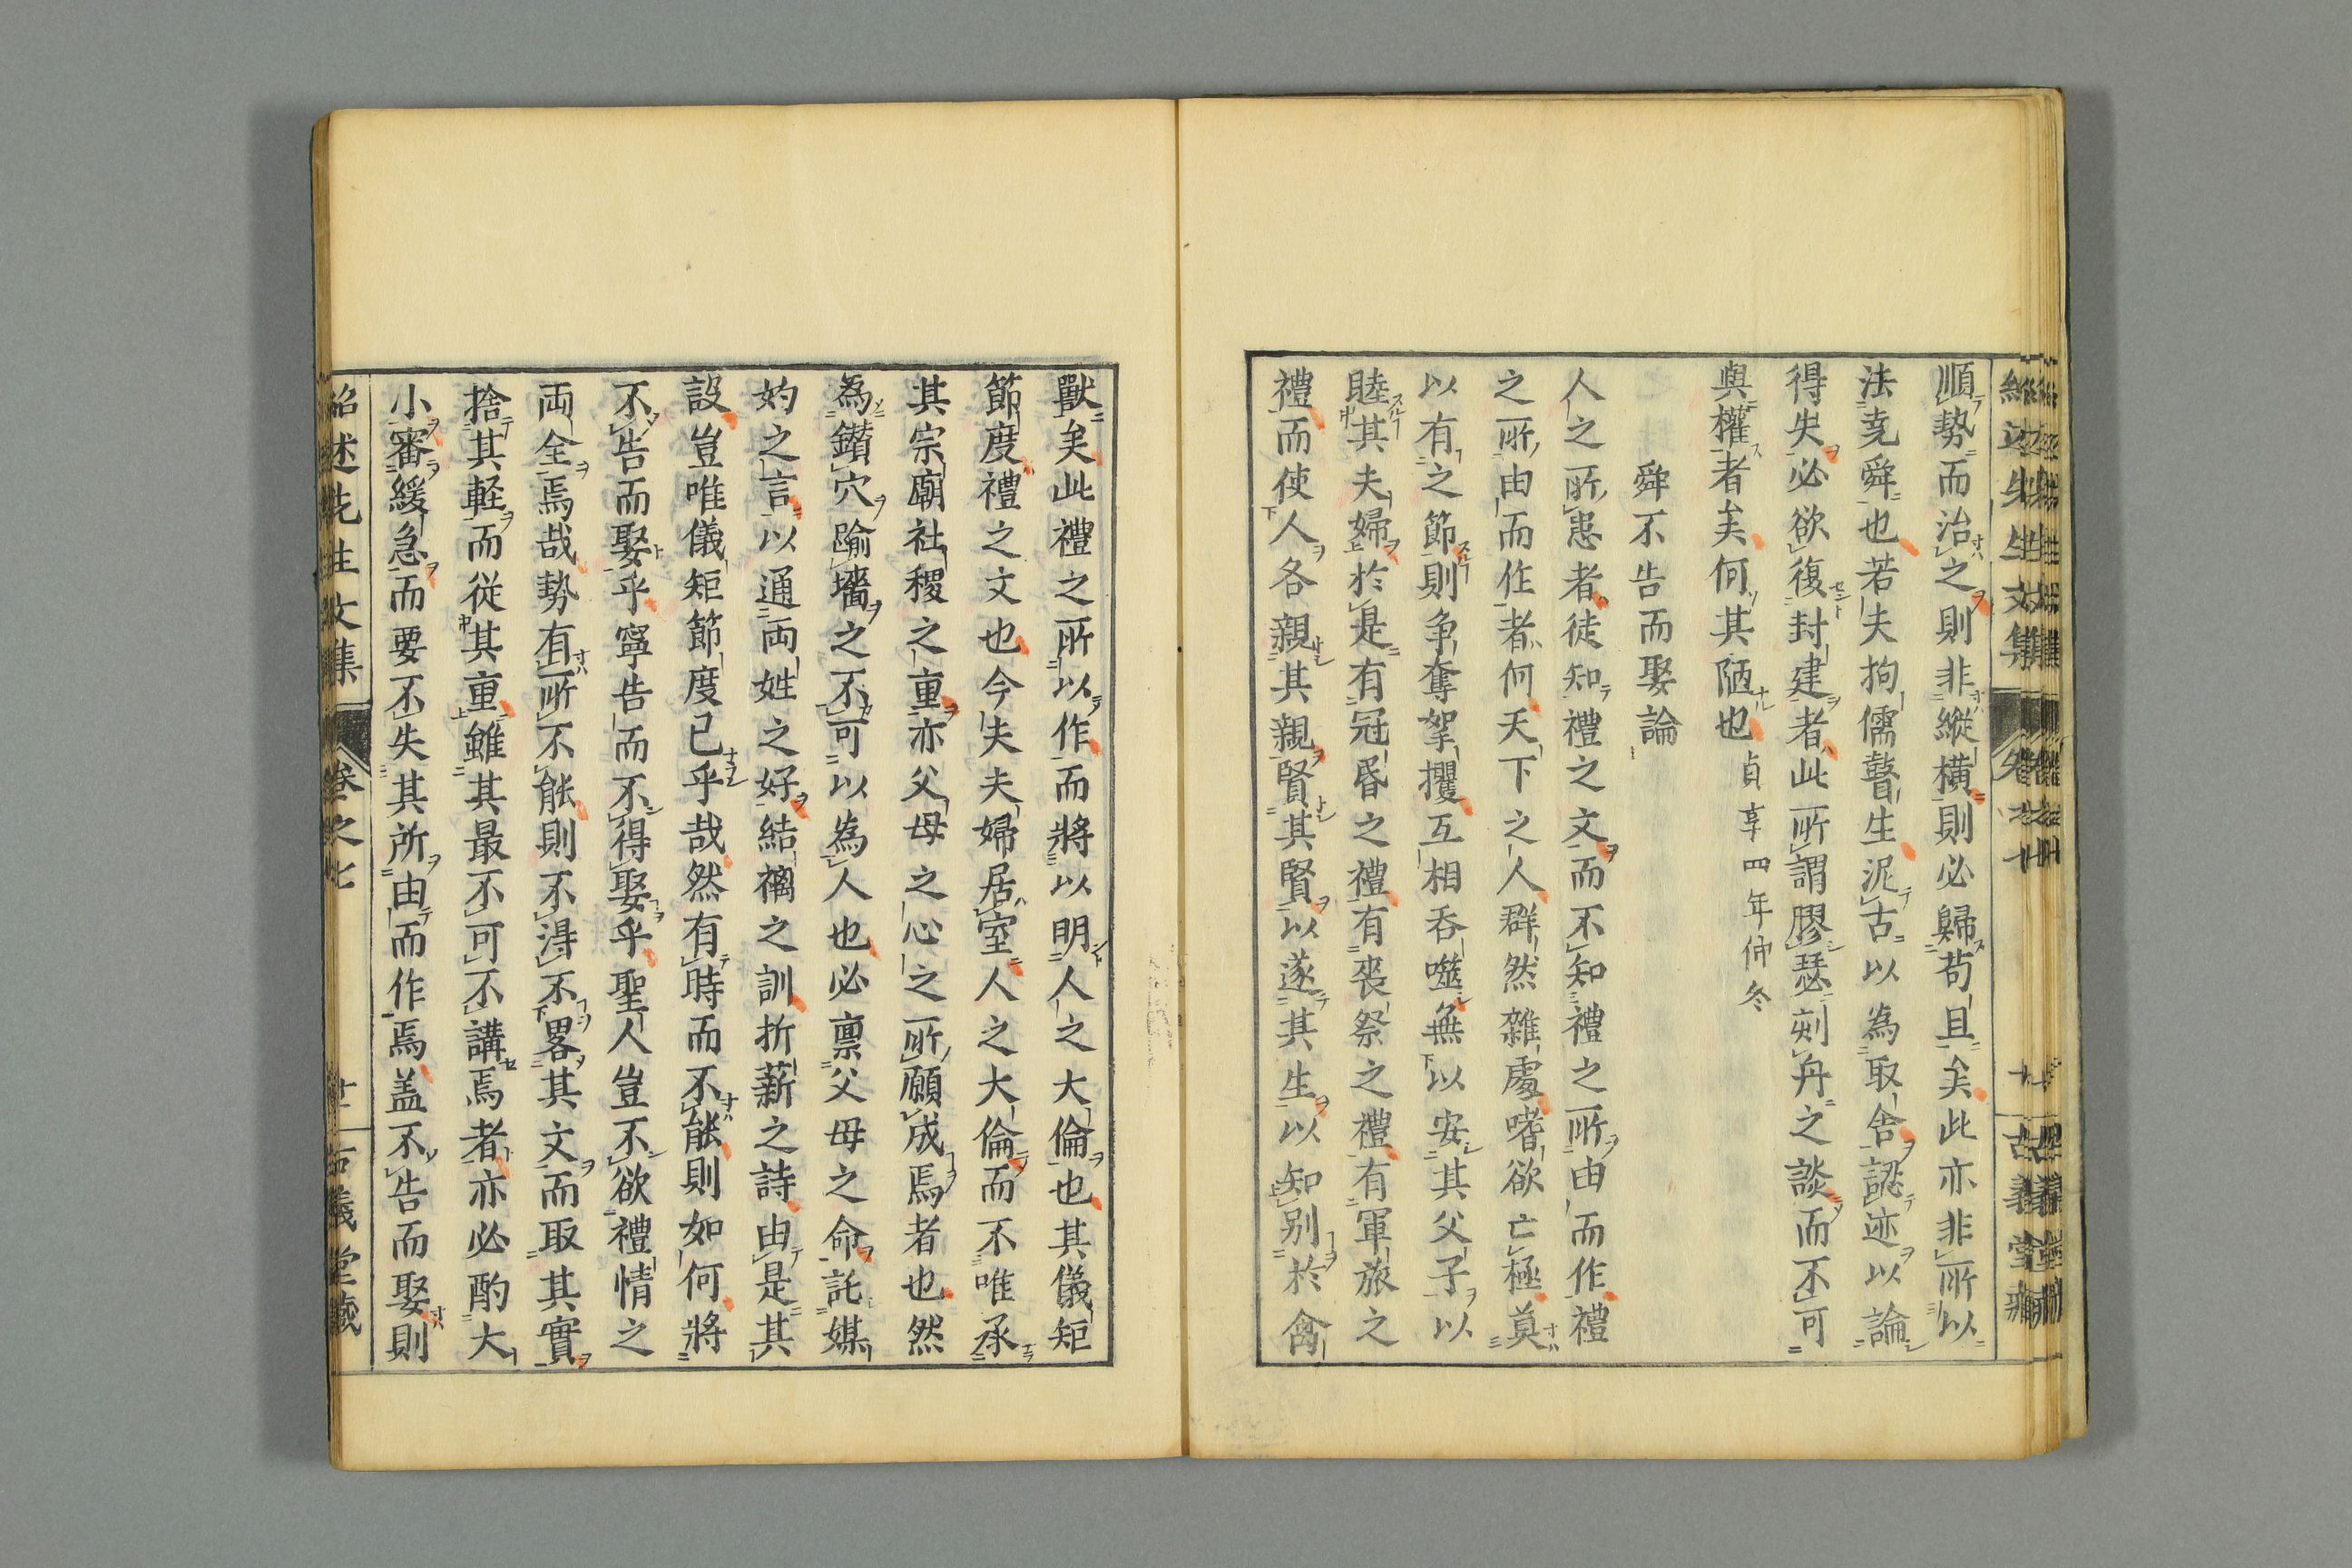 順勢而治之則非縱横則必歸苟且矣此亦非所以
法堯舜也若夫拘儒瞽生泥古以為取舍認迹以論
得失必欲復封建者此所謂膠瑟刻舟之談而不可
與權者矣何其陋也
貞享四年仲冬
舜不告而娶論
人之所患者徒知禮之文而不知禮之所由而作禮
之所由而作者何天下之人群然雜處嗜欲亡極莫
以有之節則争奪挐攫互相呑噬無以安其父子以
睦其夫婦於是有冠昏之禮有喪祭之禮有軍旅之
禮而使人各親其親賢其賢以遂其生以知别於禽
獸矣此禮之所以作而將以明人之大倫也其儀矩
節度禮之文也今夫夫婦居室人之大倫而不唯承
其宗廟社稷之重亦父母之心之所願成焉者也然
為鑽穴踰墻之不可以為人也必禀父母之命託媒
妁之言以通両姓之好結褵之訓折薪之詩由是其
設豈唯儀矩節度已乎哉然有時而不能則如何將
不告而娶乎寧告而不得娶乎聖人豈不欲禮情之
両全焉哉勢有所不能則不得不畧其文而取其實
捨其軽而従其重雖其最不可不講焉者亦必酌大
小審緩急而要不失其所由而作焉盖不告而娶則
紹述先生文集 卷之七 十一 古義堂藏